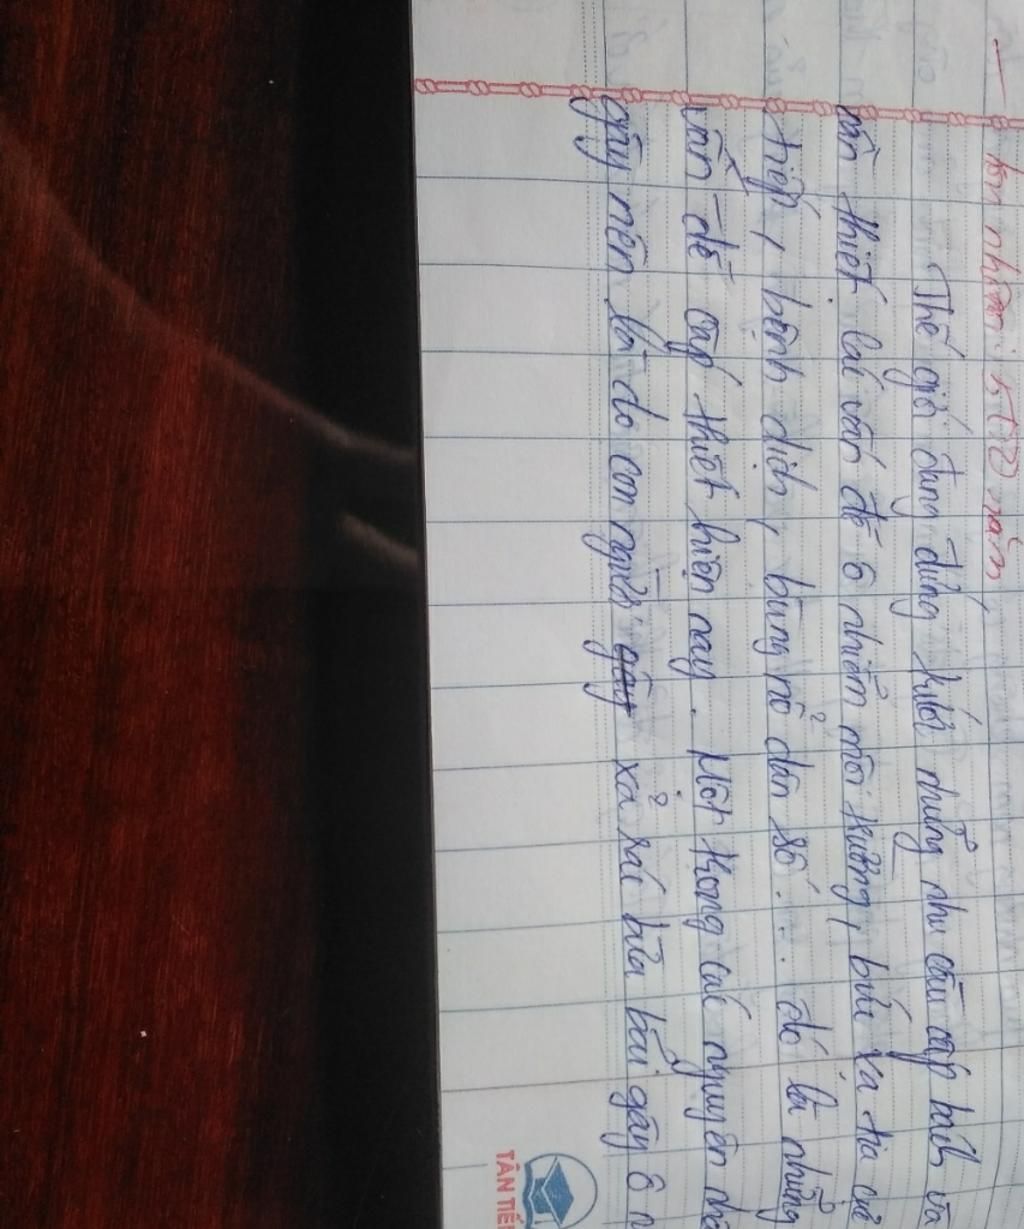 ktra 22 năm
Thế giới đang đứng trước những nhu cầu cấp bách và
cần thiết các vấn đề ô nhiễm môi trường, bức xạ tia cực
tiếp, bệnh dịch, bùng nổ dân số... đó là những
vấn đề cấp thiết hiện nay. Một trong các nguyên nhâ
gây nên là do con người xả rác bừa bãi gây ô n
TÂN TIẾ